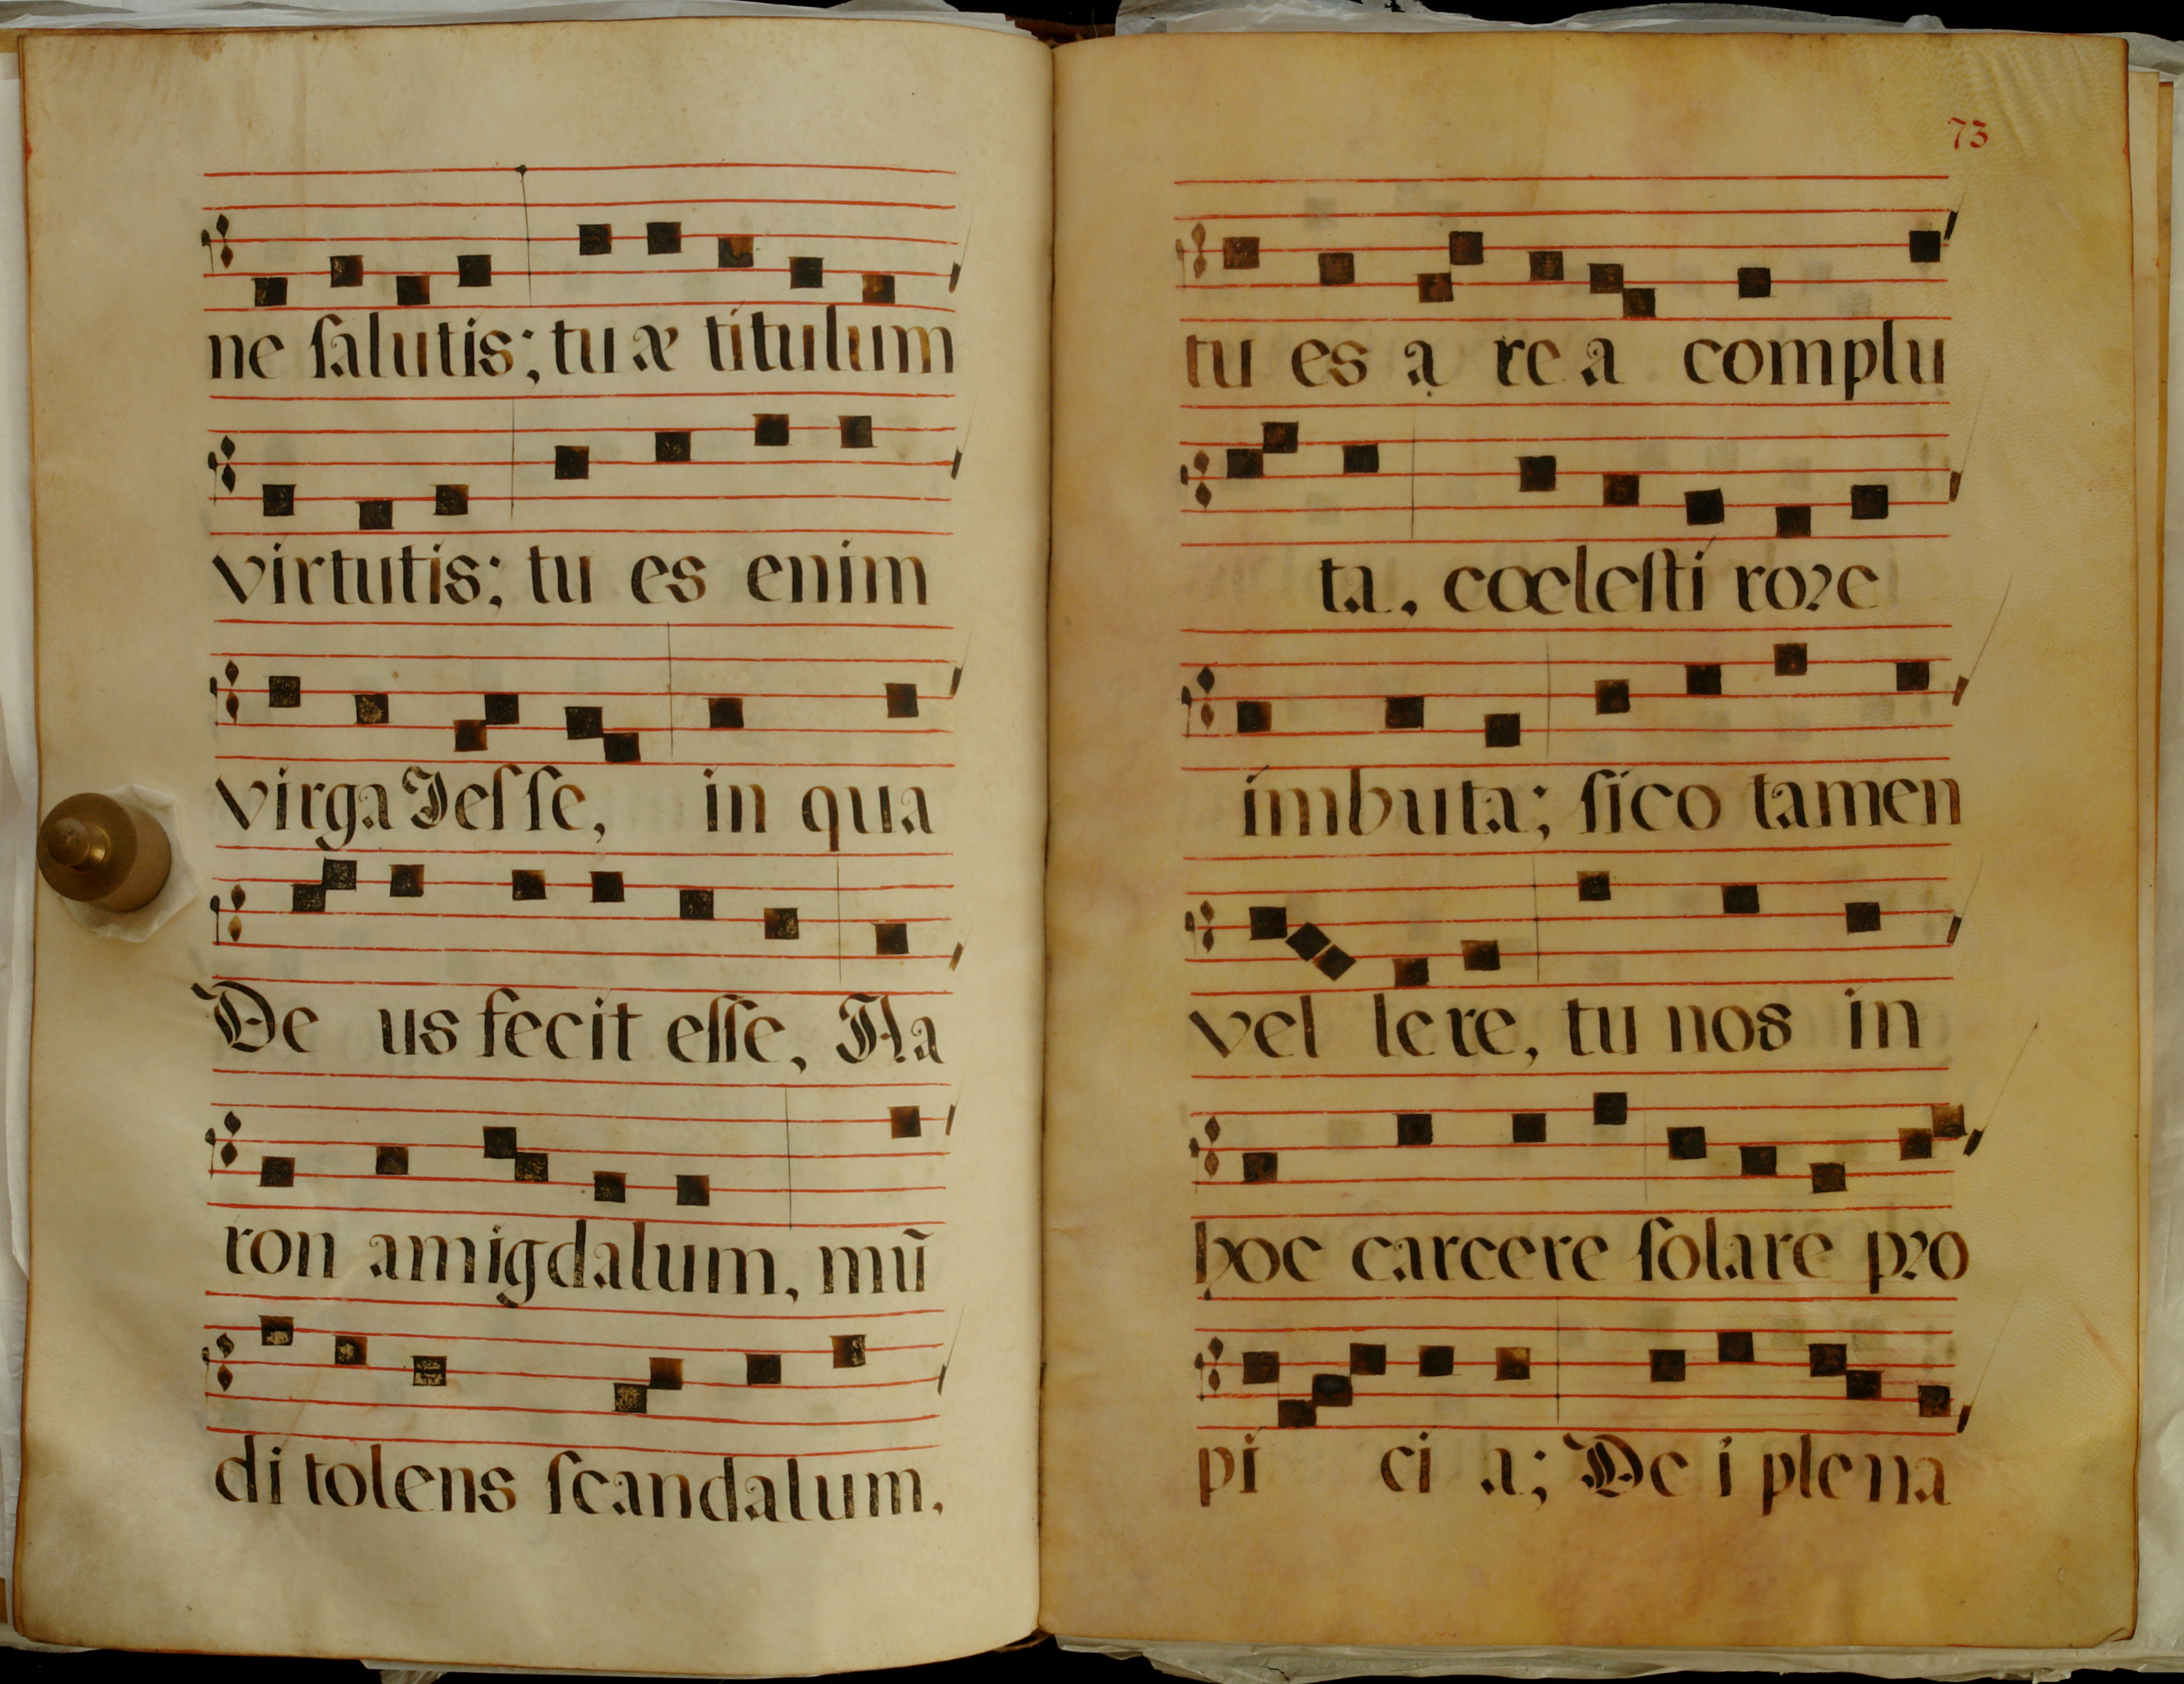 ne salutis; tuæ titulum
virtutis; tu es enim
virga Jesse, in qua
De us fecit esse, Aa
ron amigdalum, mū
di tolens scandalum,
73
tu es a re a complu
ta, cœlesti rore
imbuta; sico tamen
vel lere, tu nos in
hoc carcere solare pro
pi ci a; De i plena